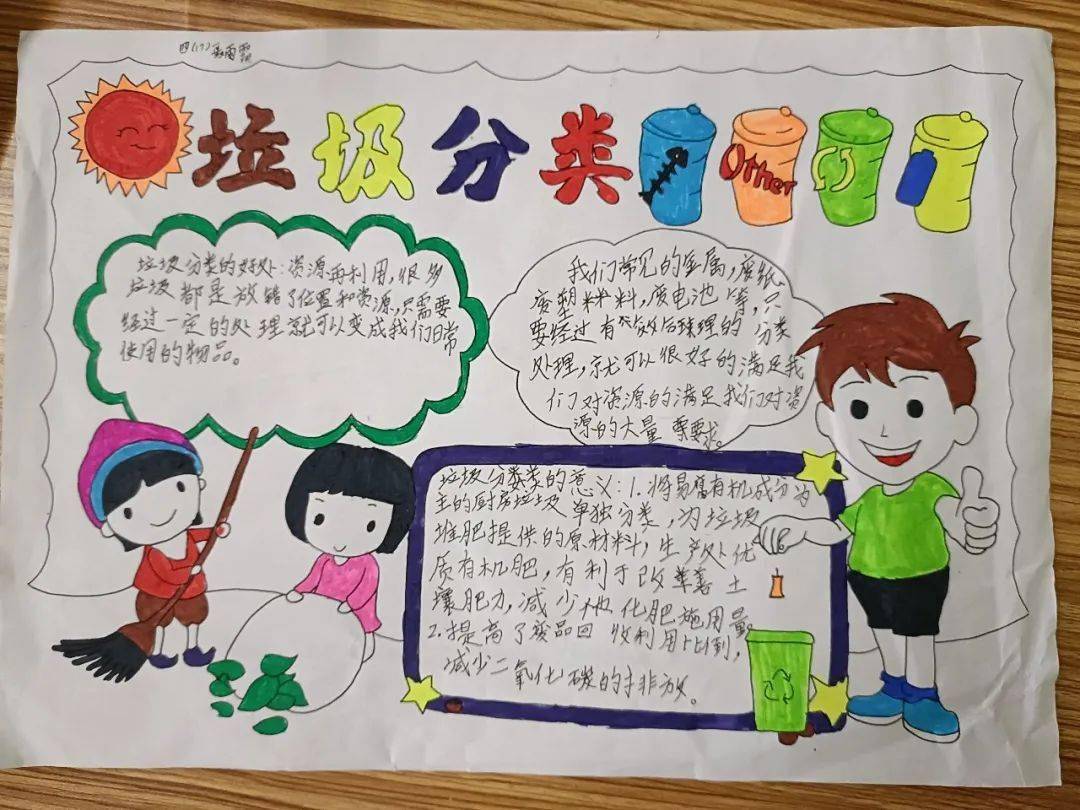 四(17)
垃圾分类
Other
垃圾分类的好处:资源再利用,很多
垃圾都是放错了位置和资源,只需要
经过一定的处理就可以变成我们日常
使用的物品。
我们常见的金属,废纸
废塑料料,废电池等,只
要经过有效后理的分类
处理,就可以很好的满足我
们对资源的满足我们对资
源的大量需要求。
垃圾分类类的意义:1.将易腐有机成分为
主的厨房垃圾单独分类,为垃圾
堆肥提供的原材料,生产处优
质有机肥,有利于改善土
壤肥力,减少他化肥施用量。
2.提高了废品回收利用比到,
减少二氧化碳的排放。